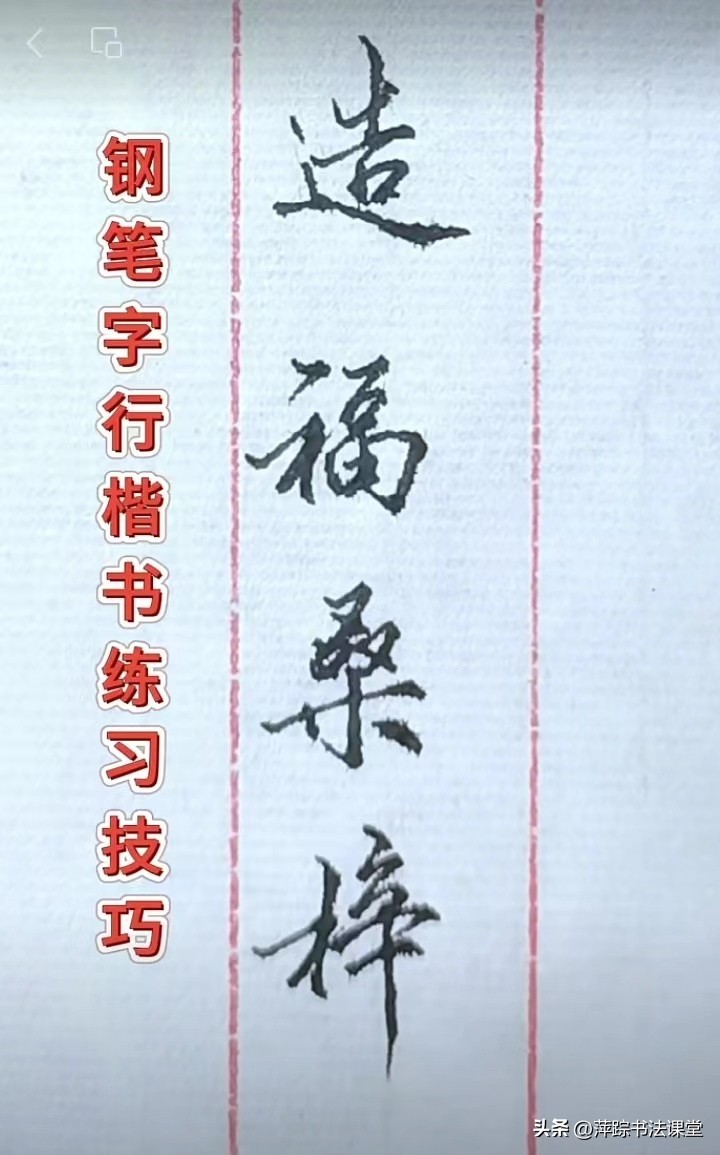 钢笔字行楷书练习技巧
造福桑梓
头条 @萍踪书法课堂